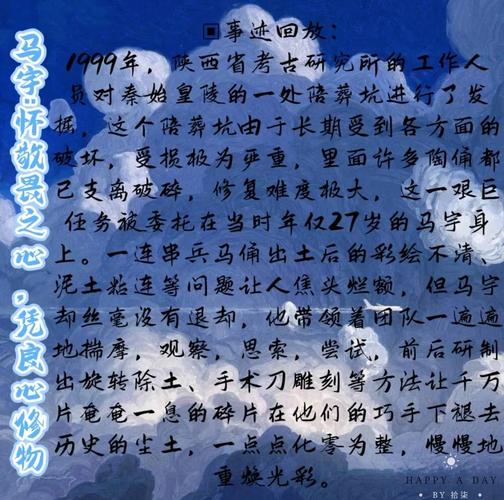 马宇:怀敬畏之心.凭良心修物
▣事迹回放:
1999年，陕西省考古研究所的工作人
员对秦始皇陵的一处陪葬坑进行了发
掘，这个陪葬坑由于长期受到各方面的
破坏，受损极为严重，里面许多陶俑都
已支离破碎，修复难度极大，这一艰巨
任务被委托在当时年仅27岁的马宇身
上。一连串兵马俑出土后的彩绘不清、
泥土粘连等问题让人焦头烂额，但马宇
却丝毫没有退却，他带领着团队一遍遍
地揣摩，观察，思索，尝试，前后研制
出旋转除土、手术刀雕刻等方法让千万
片奄奄一息的碎片在他们的巧手下褪去
历史的尘土，一点点化零为整，慢慢地
重焕光彩。
HAPPY A DAY
BY 拾柒